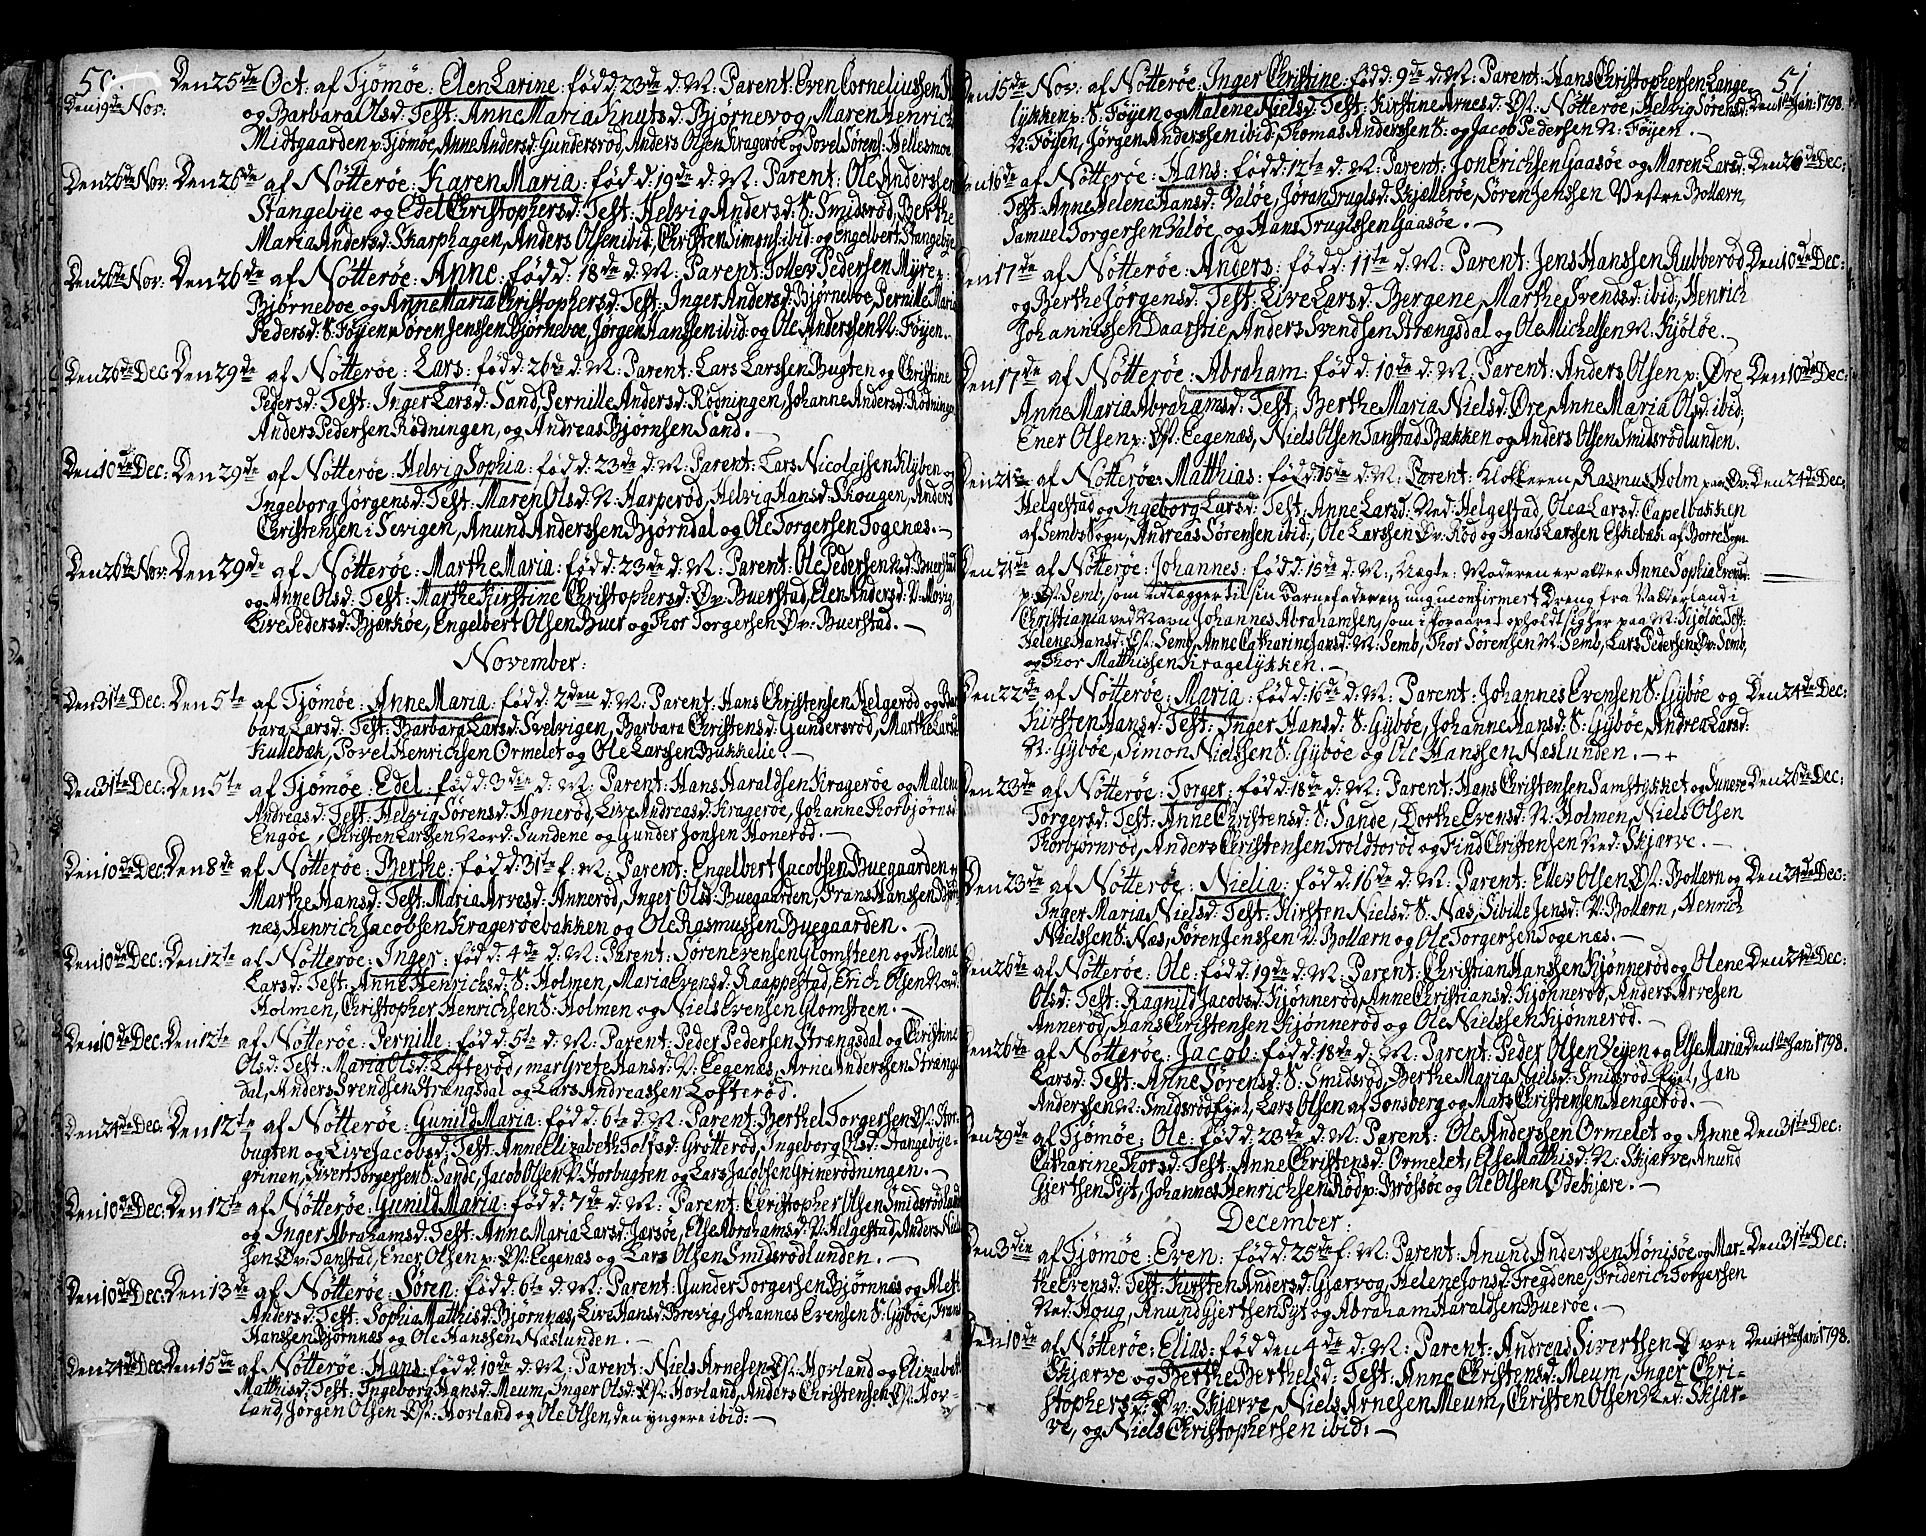 50.
Den 25de Oct. af Tjömöe: Elen Larine: född: 23de d: M: Parent: Even Cornelius sen
Den 19de Nov:
og Barbara Olsd: Test: Anne Maria Knutsd: Bjørnevog, Maren Henrich
Midtgaarden p: Tjömöe, Anne Andersd: Gundersröd, Anders Olsen Kragerøe og Povel Sörens: Hellesmoe
Den 26de Nov: Den 26de af Nötteröe: Karen Maria: född: 19de d: M: Parent: Ole Anderssen
Stangebye og Edel Christophersd: Test: Helvig Andersd: S: Smidsröd, Berthe
Maria Andersd: Skarphagen, Anders Olsen ibid, Christen Simons: ibid: og Engelbert Stangebye
Den 26de Nov: Den 26de af Nötteröe: Anne: född: 18de d: M: Parent: Tollev Pedersen Myre p:
Bjørneboe og Anne Maria Christophersd: Test: Inger Andersd: Bjørneboe, Pernille Maria
Pedersd: S: Föyen, Sören Jenssen Bjørneboe, Jørgen Hanssen ibid: og Ole Anderssen N: Föyen.
Den 26de Dec Den 29de af Nötteröe: Lars: född: 26de d: M: Parent: Lars Larssen Bugten og Christine
Pedersd: Test: Inger Larsd: Sand, Pernille Andersd: Rödningen, Johanne Andersd: Rödning
Anders Pedersen Rödningen, og Andreas Bjørnsen Sand.
Den 10de Dec: Den 29de af Nötteröe: Helvig Sophia: född: 23de d: M: Parent: Lars Nicolajsen Klyben og
Ingeborg Jørgensd: Test: Maren Olsd: N: Harperöd, Helvig Hansd: Skougen, Anders
Christensen i Sevigen, Anund Anderssen Bjørndal og Ole Torgersen Togenæs.
Den 26de Nov: Den 29de af Nötteröe: Marthe Maria: född: 23de d: M: Parent: Ole Pedersen Ned: Buerstad
og Anne Olsd: Test: Marthe Kirstine Christophersd: Øv: Buerstad, Elen Andersd: V: Morig,
Live Pedersd: Bjærkøe, Engelbert Olsen Buer og Thor Torgersen Øv: Buerstad.
November:
Den 31te Dec: Den 5te af Tjömöe: Anne Maria: född: 2den d: M: Parent: Hans Christensen Helgeröd og Bar
bara Larsd: Test: Barbara Larsd: Svelvigen, Barbara Christensd: Gundersröd, Marthe Larsd
Kullebæk, Povel Henrichsen Ormelet og Ole Larssen Bukkelie.
Den 31te Dec: Den 5te af Tjömöe: Edel: född: 3die d: M: Parent: Hans Haraldsen Kragerøe og Malene
Andreasd: Test: Helvig Sörensd: Honeröd, Live Andreasd: Kragerøe, Johanne Thorbjørnsd
Engöe, Christen Larssen Nord: Sundene og Gunder Jonsen Honeröd.
Den 10de Dec: Den 8de af Nötteröe: Berthe: född: 31te f: M: Parent: Engelbert Jacobsen Buegaarden og
Marthe Hansd: Test: Maria Arvesd: Anneröd, Inger Olsd: Buegaarden, Frans Hanssen Bjørn
næs, Henrich Jacobsen Kragerøebakken og Ole Rasmussen Buegaarden.
Den 10de Dec: Den 12te af Nötteröe: Inger: född: 4de d: M: Parent: Sören Evensen Glomsteen og Helene
Larsd: Test: Anne Henricksd: S: Holmen, Maria Evensd: Raappestad, Erich Olsen Nord:
Holmen, Christopher Henrichsen S: Holmen og Niels Evensen Glomsteen.
Den 10de Dec: Den 12te af Nötteröe: Pernille: född: 5te d: M: Parent: Peder Pedersen Strengsdal og Christine
Olsd: Test: Maria Olsd: Lofteröd, margrete Hansd: N: Eegenæs, Arne Anderssen Strængs
dal, Anders Svendsen Strængsdal og Lars Andreassen Lofteröd.
Den 24de Dec: Den 12te af Nötteröe: Gunild Maria: född: 6te d: M: Parent: Berthel Torgersen Ø: Stor
bugten og Live Jacobsd: Test: Anne Elizabeth Tolfsd: Grötteröd, Ingeborg Olsd: Stangebye-
grinan, Sivert Torgersen S: Sande, Jacob Olsen V: Storbugten og Lars Jacobsen Grinerödningen.
Den 10de Dec: Den 12te af Nötteröe: Gunild Maria: född: 7de d: M: Parent: Christopher Olsen Smidsrödlund
og Inger Abrahamsd: Test: Anne Maria Larsd: Jarsöe, Else Abrahamsd: V: Helgestad, Anders Niel
sen Øv: Tanstad, Ener Olsen p: Ø: Eegenæs og Lars Olsen Smidsrödlunden.
Den 10de Dec: Den 13de af Nötteröe: Sören: född: 6te d: M: Parent: Gunder Torgersen Bjørnnæs og Alet
Andersd: Test: Sophia Matthisd: Bjørnnæs, Live Hansd: Brevig, Johannes Evensen S: Gyböe, Frans
Hanssen Bjørnnæs og Ole Hanssen Næslunden.
Den 24de Dec: Den 15de af Nötteröe: Hans: född: 10de d: M: Parent: Niels Arnesen Ø: Horland og Elizabeth
Matthisd: Test: Ingeborg Hansd: Meum, Inger Olsd: Ø: Horland, Anders Christensen Ø: Hor-
land, Jørgen Olsen Ø: Horland og Ole Olsen, den yngere ibid:
51
Den 15de Nov. af Nötteröe: Inger Christine: född: 9de d: M: Parent: Hans Christophersen Lange
lykken p: S: Föyen og Malene Nielsd: Test: Kirstine Arnesd: Ø: Nötteröe, Helvig Sörensd: Den 1te Jan: 1798.
N: Föyen, Jørgen Anderssen ibid, Thomas Anderssen S: og Jacob Pedersen N: Föyen.
Den 16de af Nötteröe: Hans: född: 12te d: M: Parent: Jon Erichsen Gaasöe og Maren Larsd: Den 26de Dec:
Test: Anne Helene Hansd: Valöe, Jøran Truglsd: Skjelleröe, Sören Jenssen Vestre Bollærn,
Samuel Torgersen Valöe, og Hans Truglssen Gaasöe.
Den 17de af Nötteröe: Anders: född: 11te d: M: Parent: Jens Hanssen Rubberöd Den 10de Dec:
og Berthe Jørgensd: Test: Live Larsd: Bergene, Marthe Svendsd: ibid, Henrich
Johannissen Daarstie, Anders Svendsen Strængsdal og Ole Michelsen N: Kjölöe.
Den 17de af Nötteröe: Abraham: född: 10de d: M: Parent: Anders Olsen p: Øre Den 10de Dec:
Anne Maria Abrahamsd: Test: Berthe Maria Nielsd: Øre, Anne Maria Olsd: ibid,
Ener Olsen p: Ø: Eegenæs, Niels Olsen Tanstad Bakken og Anders Olsen Smidsrödlunden.
Den 21de af Nötteröe: Matthias: född: 15de d: M: Parent: Klokkeren Rasmus Holm paa Øv: Den 24de Dec:
Helgestad og Ingeborg Larsd: Test: Anne Larsd: Ned: Helgestad, Olea Larsd: Capelbakken
af Sembs Sogn, Andreas Sörensen ibid, Ole Larssen Øv: Röd og Hans Larssen Eskebæk af Borre Sogn.
Den 21de af Nötteröe: Johannes: född: 15de d: M:, Uægte: Moderen er atter Anne Sophia Evensd:
p: Ø: Semb, som udlægger til sin Barnefader en ung uconfirmert Dreng fra Valderland i
Christiania ved Navn Johannes Abrahamsen, som i foraaret opholdt sig her paa N: Kjölöe Test:
Helene Hansd: Ø: Semb, Anne Catharine Jansd: N: Semb, Thor Sörensen N: Semb, Lars Pedersen Øv: Semb,
og Thor Matthissen Kragelykken.
Den 22de af Nötteröe: Maria: född: 16de d: M: Parent: Johannes Evensen S: Gyböe og Den 24de Dec:
Kirsten Hansd: Test: Inger Hansd: S: Gyböe, Johanne Hansd: S: Gyböe, Andrea Larsd:
N: Gyböe, Simon Nielssen S: Gyböe og Ole Hanssen Næslunden. +
Den 23de af Nötteröe: Torger: född: 18de d: M: Parent: Hans Christensen Samstykket og Gunere Den 26de Dec:
Torgersd: Test: Anne Christensd: S: Sande, Dorthe Evensd: N: Holmen, Niels Olsen
Thorbjørnröd, Anders Christensen Troldtoröd og Find Christensen Ned: Skjærve.
Den 23de af Nötteröe: Nielia: född: 16de d: M: Parent: Ellev Olsen Ø: Bollærn og Den 24de Dec:
Inger Maria Nielsd: Test: Kirsten Nielsd: S: Næs, Sibille Jensd: V: Bollærn, Henrich
Nielssen S: Næs, Sören Jenssen V: Bollærn og Ole Torgersen Togenæs.
Den 26de af Nötteröe: Ole: född: 19de d: M: Parent: Christian Hanssen Kjönneröd og Olene Den 24de Dec:
Olsd: Test: Ragnild Jacobsd: Kjönneröd, Anne Christiansd: Kjönneröd, Anders Arvesen
Anneröd, Hans Christensen Kjönneröd og Ole Nielssen Kjönneröd.
Den 26de af Nötteröe: Jacob: född: 18de d: M: Parent: Peder Olsen Vejen og Else Maria Den 1te Jan: 1798.
Larsd: Test: Anne Sörensd: S: Smidsröd, Berthe Maria Nielsd: Smidsröd Eyet, Jan
Anderssen N: Smidsröd Eyet, Lars Olsen af Tønsberg og Mats Christensen Hengeröd.
Den 29de af Tjömöe: Ole: född: 23de d: M: Parent: Ole Anderssen Ormelet og Anne Den 31te Dec:
Catharine Thorsd: Test: Anne Christensd: Ormelet, Else Matthisd: N: Skjærve, Anund
Gjertsen Pyt, Johannes Henrichsen Röd p: Brösöe og Ole Olsen Ødekjære.
December:
Den 3die af Tjömöe: Even: född: 25de f: M: Parent: Anund Anderssen Hönisöe og Mar- Den 31te Dec:
the Evensd: Test: Kirsten Andersd: Gjærvog, Helene Jonsd: Tregdene, Friderich Torgersen
Ned: Houg, Anund Gjertsen Pyt og Abraham Haraldsen Bueröe.
Den 10de af Nötteröe: Elias: född den 4de d: M: Parent: Andreas Sivertsen Øvre Den 14de Jan: 1798.
Skjærve og Berthe Berthelsd: Test: Anne Christensd: Meum, Inger Chri-
stophersd: Øv: Skjærve, Niels Arnesen Meum, Christen Olsen Ned: Skjær-
ve, og Niels Christophersen ibid: